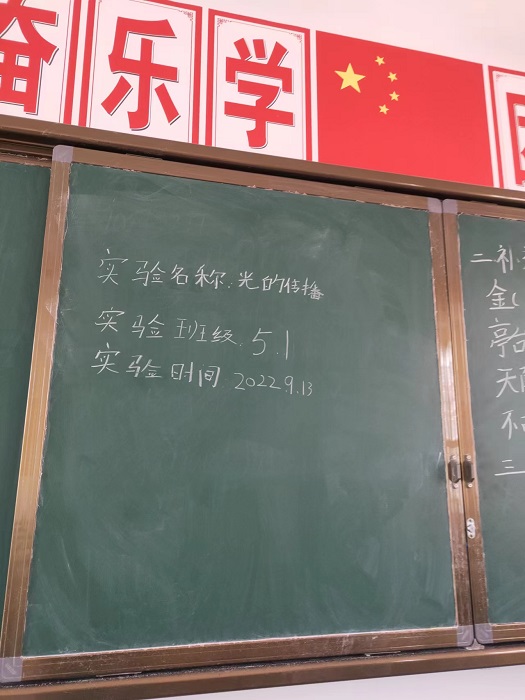 奋 乐 学
实验名称:光的传播
实验班级:5.1
实验时间 2022.9.13
二补
金(
亭台
天
不
三